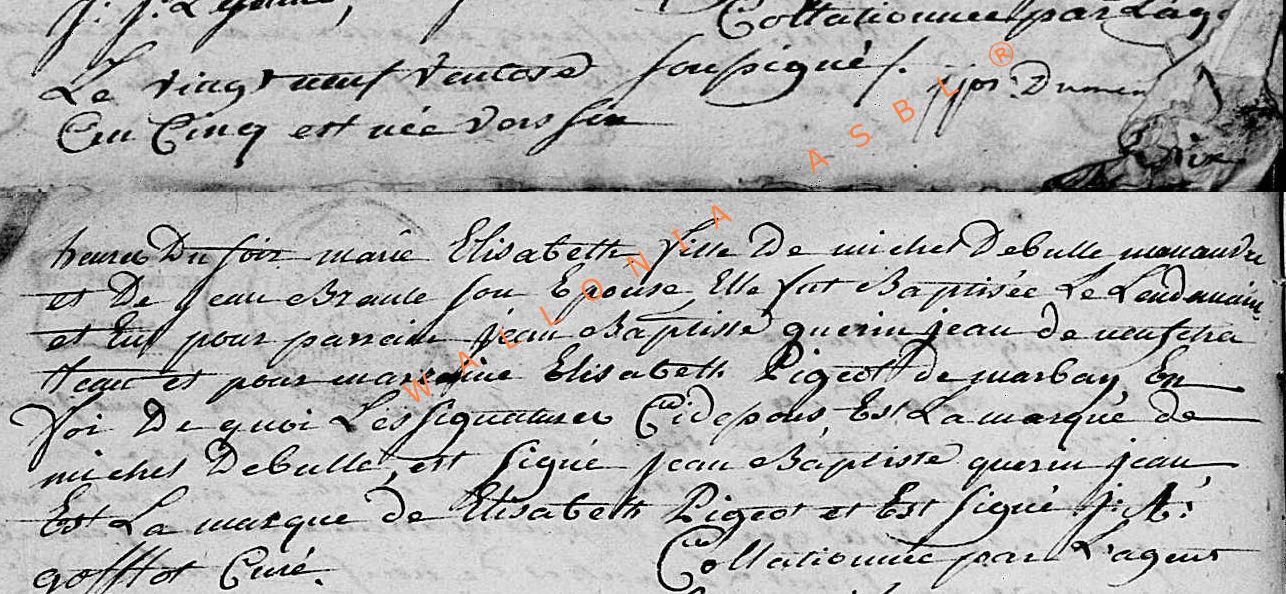 Collationnee par Lag
Le vingt neuf ventose soussigné
jjos: Dumen
Cin Cinq est née vers six
Dix
heures Du soir marie Elisabeth fille De michel Debulle manandre
et De jean Braule son Epouse Elle fut Baptisée Le Lendemain
et Eut pour parrain jean Baptiste querinjean de neufcha
tteau et pour marraine Elisabeth Pigeot de marbay En
foi De quoi Les signatures Cidepous, Est La marque de
michel Debulle, est signé jean Baptiste querinjean
Est La marque de Elisabeth Pigeot et Est signé j: A:
gofftot Curé. Collationnée par L'agent
WALLONIA ASBL ®